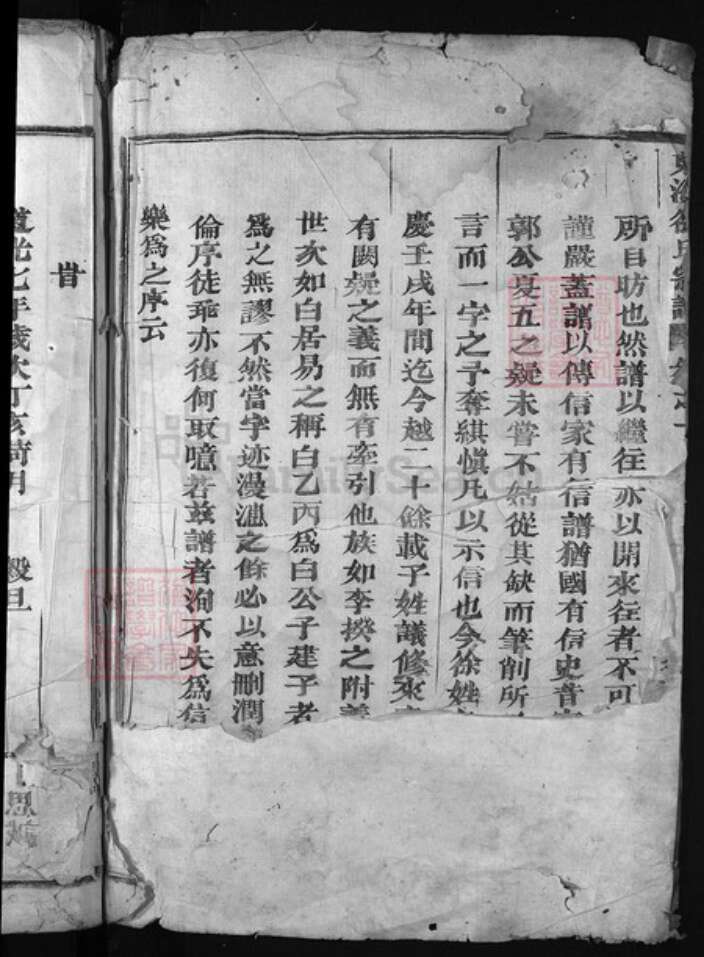 東海徐氏宗譜卷之一
所自昉也然譜以繼往亦以開來往者不可
謹嚴蓋譜以傳信家有信譜猶國有信史昔
郭公夏五之疑未嘗不姑從其缺而筆削所
言而一字之予奪綦慎凡以示信也今徐姓
慶壬戌年間迄今越二十餘載子姓議修來
有闕疑之義而無有牽引他族如李揆之附
世次如白居易之稱白乙丙為白公子建子者
為之無謬不然當字迹漫漶之餘必以意刪潤
倫序徒乖亦復何取噫若茲譜者洵不失為信
樂為之序云
旹
道光七年歲次丁亥 月 穀旦
思
FamilySearch